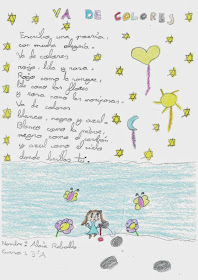 VA DE COLORES
Escribo una poesía,
con mucha alegría.
Va de colores
rojo, lila y rosa.
Rojo como la sangre,
lila como las flores
y rosa como las mariposas.
Va de colores
blanco, negro y azul.
Blanco como la nieve,
negro como el carbón
y azul como el cielo
donde brillas tú.
Nombre: Alicia
Curso: 3ºA